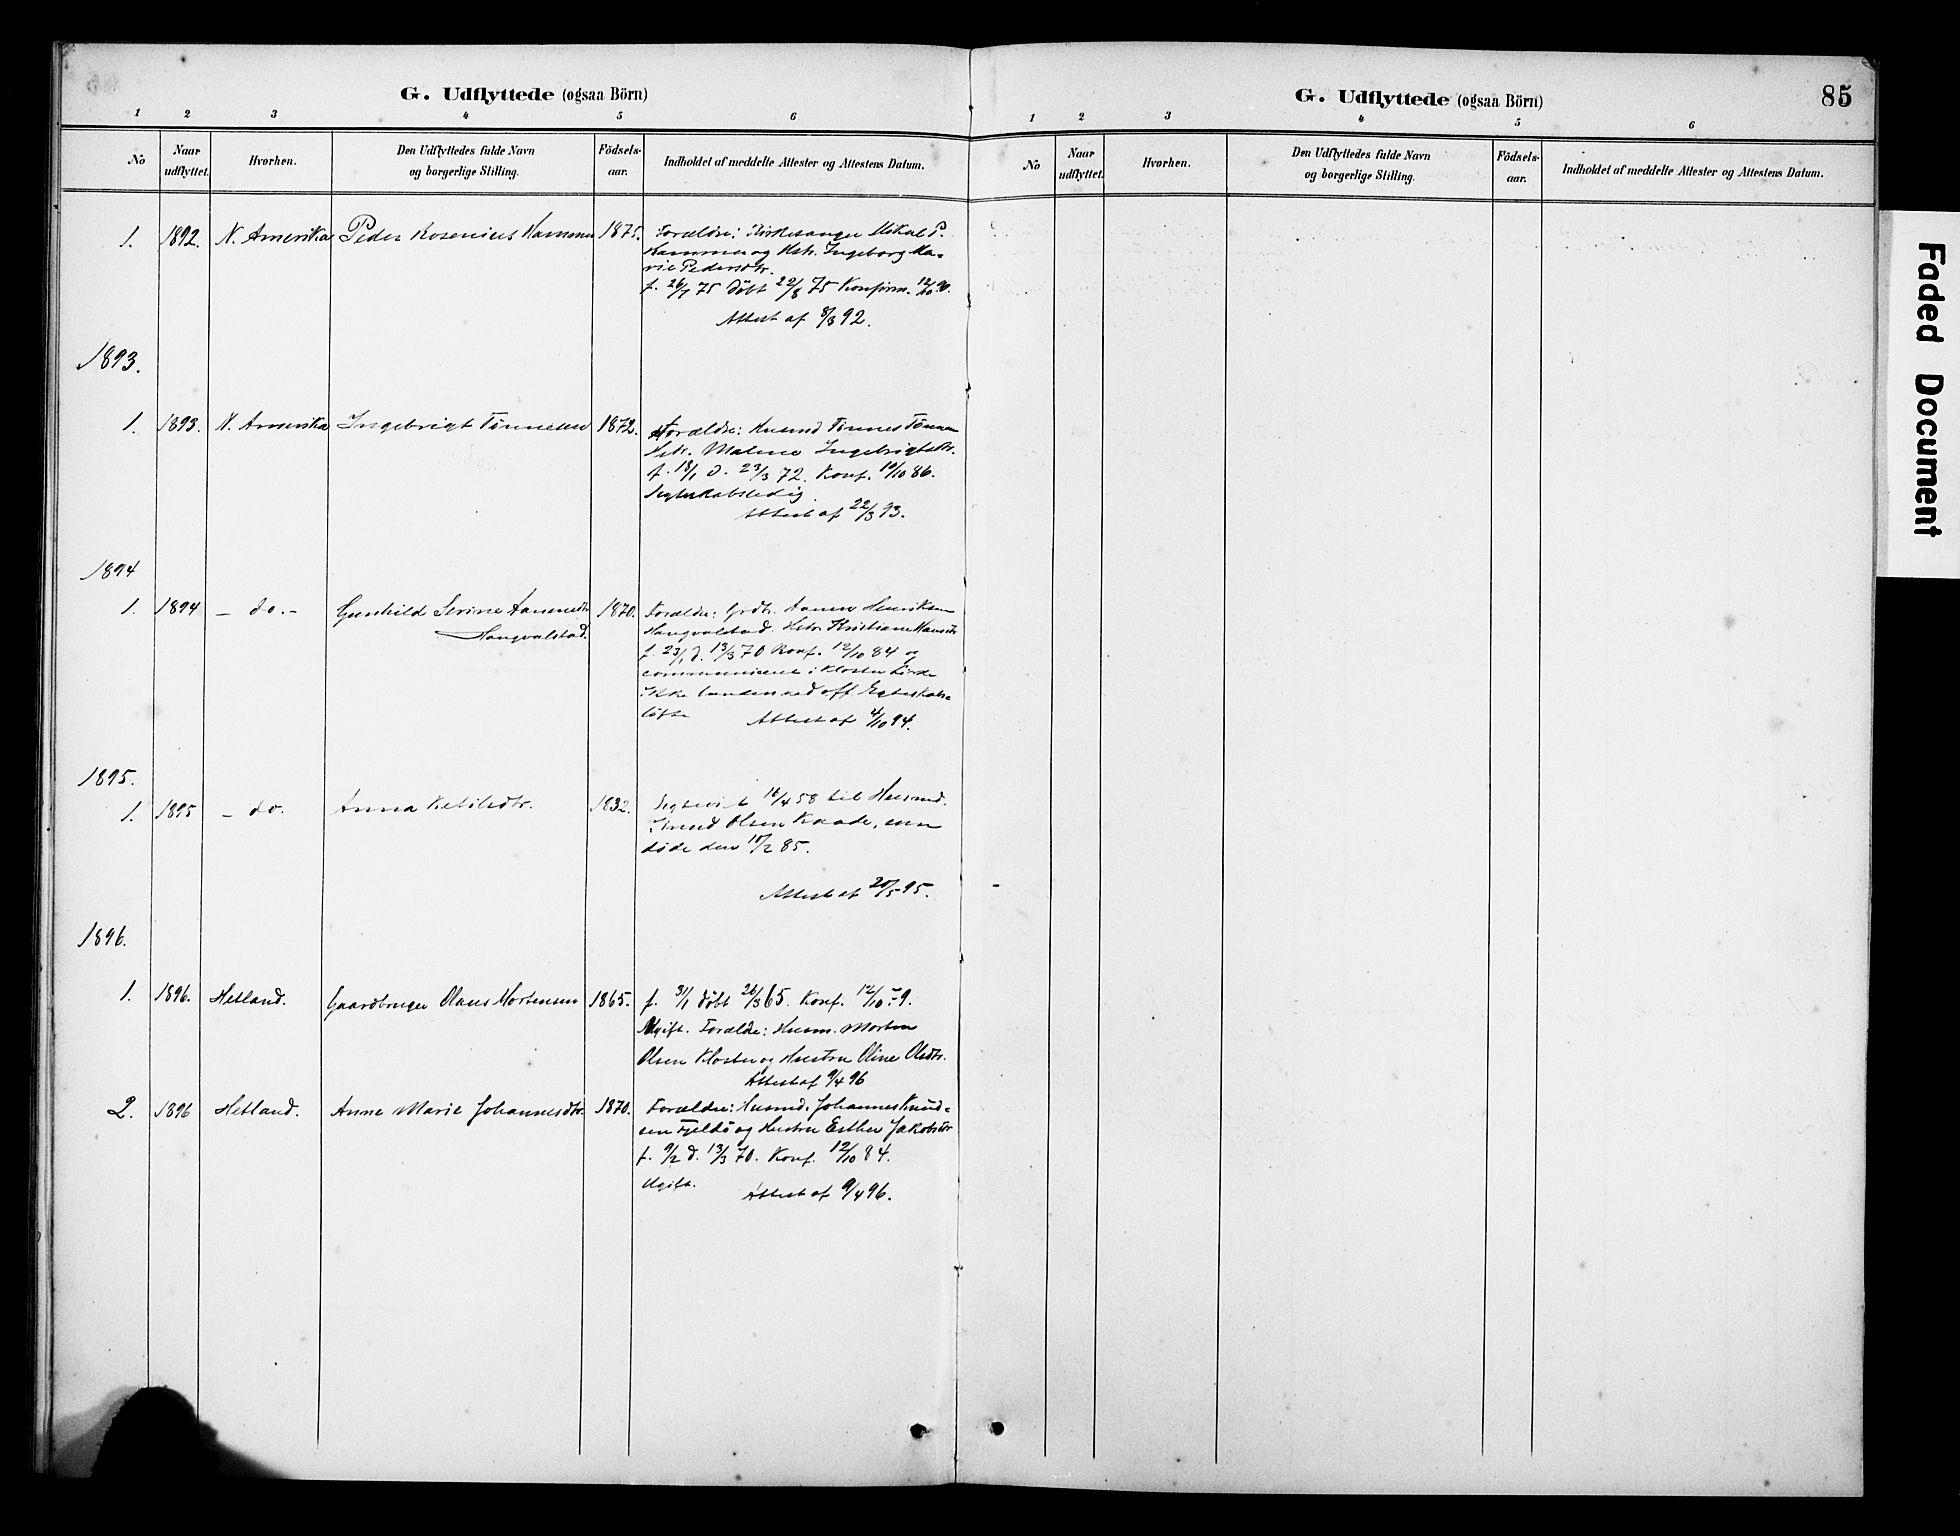 G. Udflyttede (ogsaa Börn)
1 2 3 4 5 6
No Naar udflyttet. Hvorhen. Den Udflyttedes fulde Navn og borgerlige Stilling. Födsels-aar. Indholdet af meddelte Attester og Attestens Datum.
1. 1892. N. Amerika Peder Rosenius Hammer 1875. Forældre: Kirkesanger Mikal P.
Hammer og Hstr. Ingeborg Ma-
rie Pedersdtr.
f. 26/7 75 døbt 22/8 75 Konfirm. 12/10 90.
Attest af 8/3 92.
1893.
1. 1893. N. Amerika Ingebrigt Tønnesen 1872. Forældre: Husmd Tønnes Tønnesen
Hstr. Malene Ingebrigtsdtr.
f. 18/1 d. 23/3 72. Konf. 10/10 86.
Ægteskabsledig.
Attest af 22/3 93.
1894
1. 1894 - do. - Gunhild Serine Aanensdtr 1870. Forældre: Grdbr. Aanen Henriksen
Hangvalstad. Hangvalstad. Hstr. Kristiane Hansdtr
f. 23/1 d. 13/3 70 Konf. 12/10 84 og
communiceret i Kloster Kirke
ikke bunden ved off. Egteskabs-
løfte Attest af 4/10 94.
1895.
1. 1895 - do. Anna Ketilsdtr. 1832. Egteviet 16/4 58 til Husmd.
Knud Olsen Kaade, som
døde den 15/2 85.
Attest af 20/5 95.
1896.
1. 1896. Hetland. Gaardbruger Olaus Mortensen 1865. f. 31/1 døbt 26/3 65. Konf. 12/10 79.
Ugift. Forældre: Husm. Morten
Olsen Kloster og Hustru Oline Olsdtr.
Attest af 9/4 96
2. 1896 Hetland. Anne Marie Johannesdtr. 1870. Forældre: Husmd. Johannes Knud-
sen Fjeldö og Hustru Esther Jakobsdtr
f. 9/2 d. 13/3 70. Konf. 12/10 84.
Ugift. Attest af 9/4 96.
G. Udflyttede (ogsaa Börn)
85
1 2 3 4 5 6
No Naar udflyttet. Hvorhen. Den Udflyttedes fulde Navn og borgerlige Stilling. Födsels-aar. Indholdet af meddelte Attester og Attestens Datum.
Faded Document